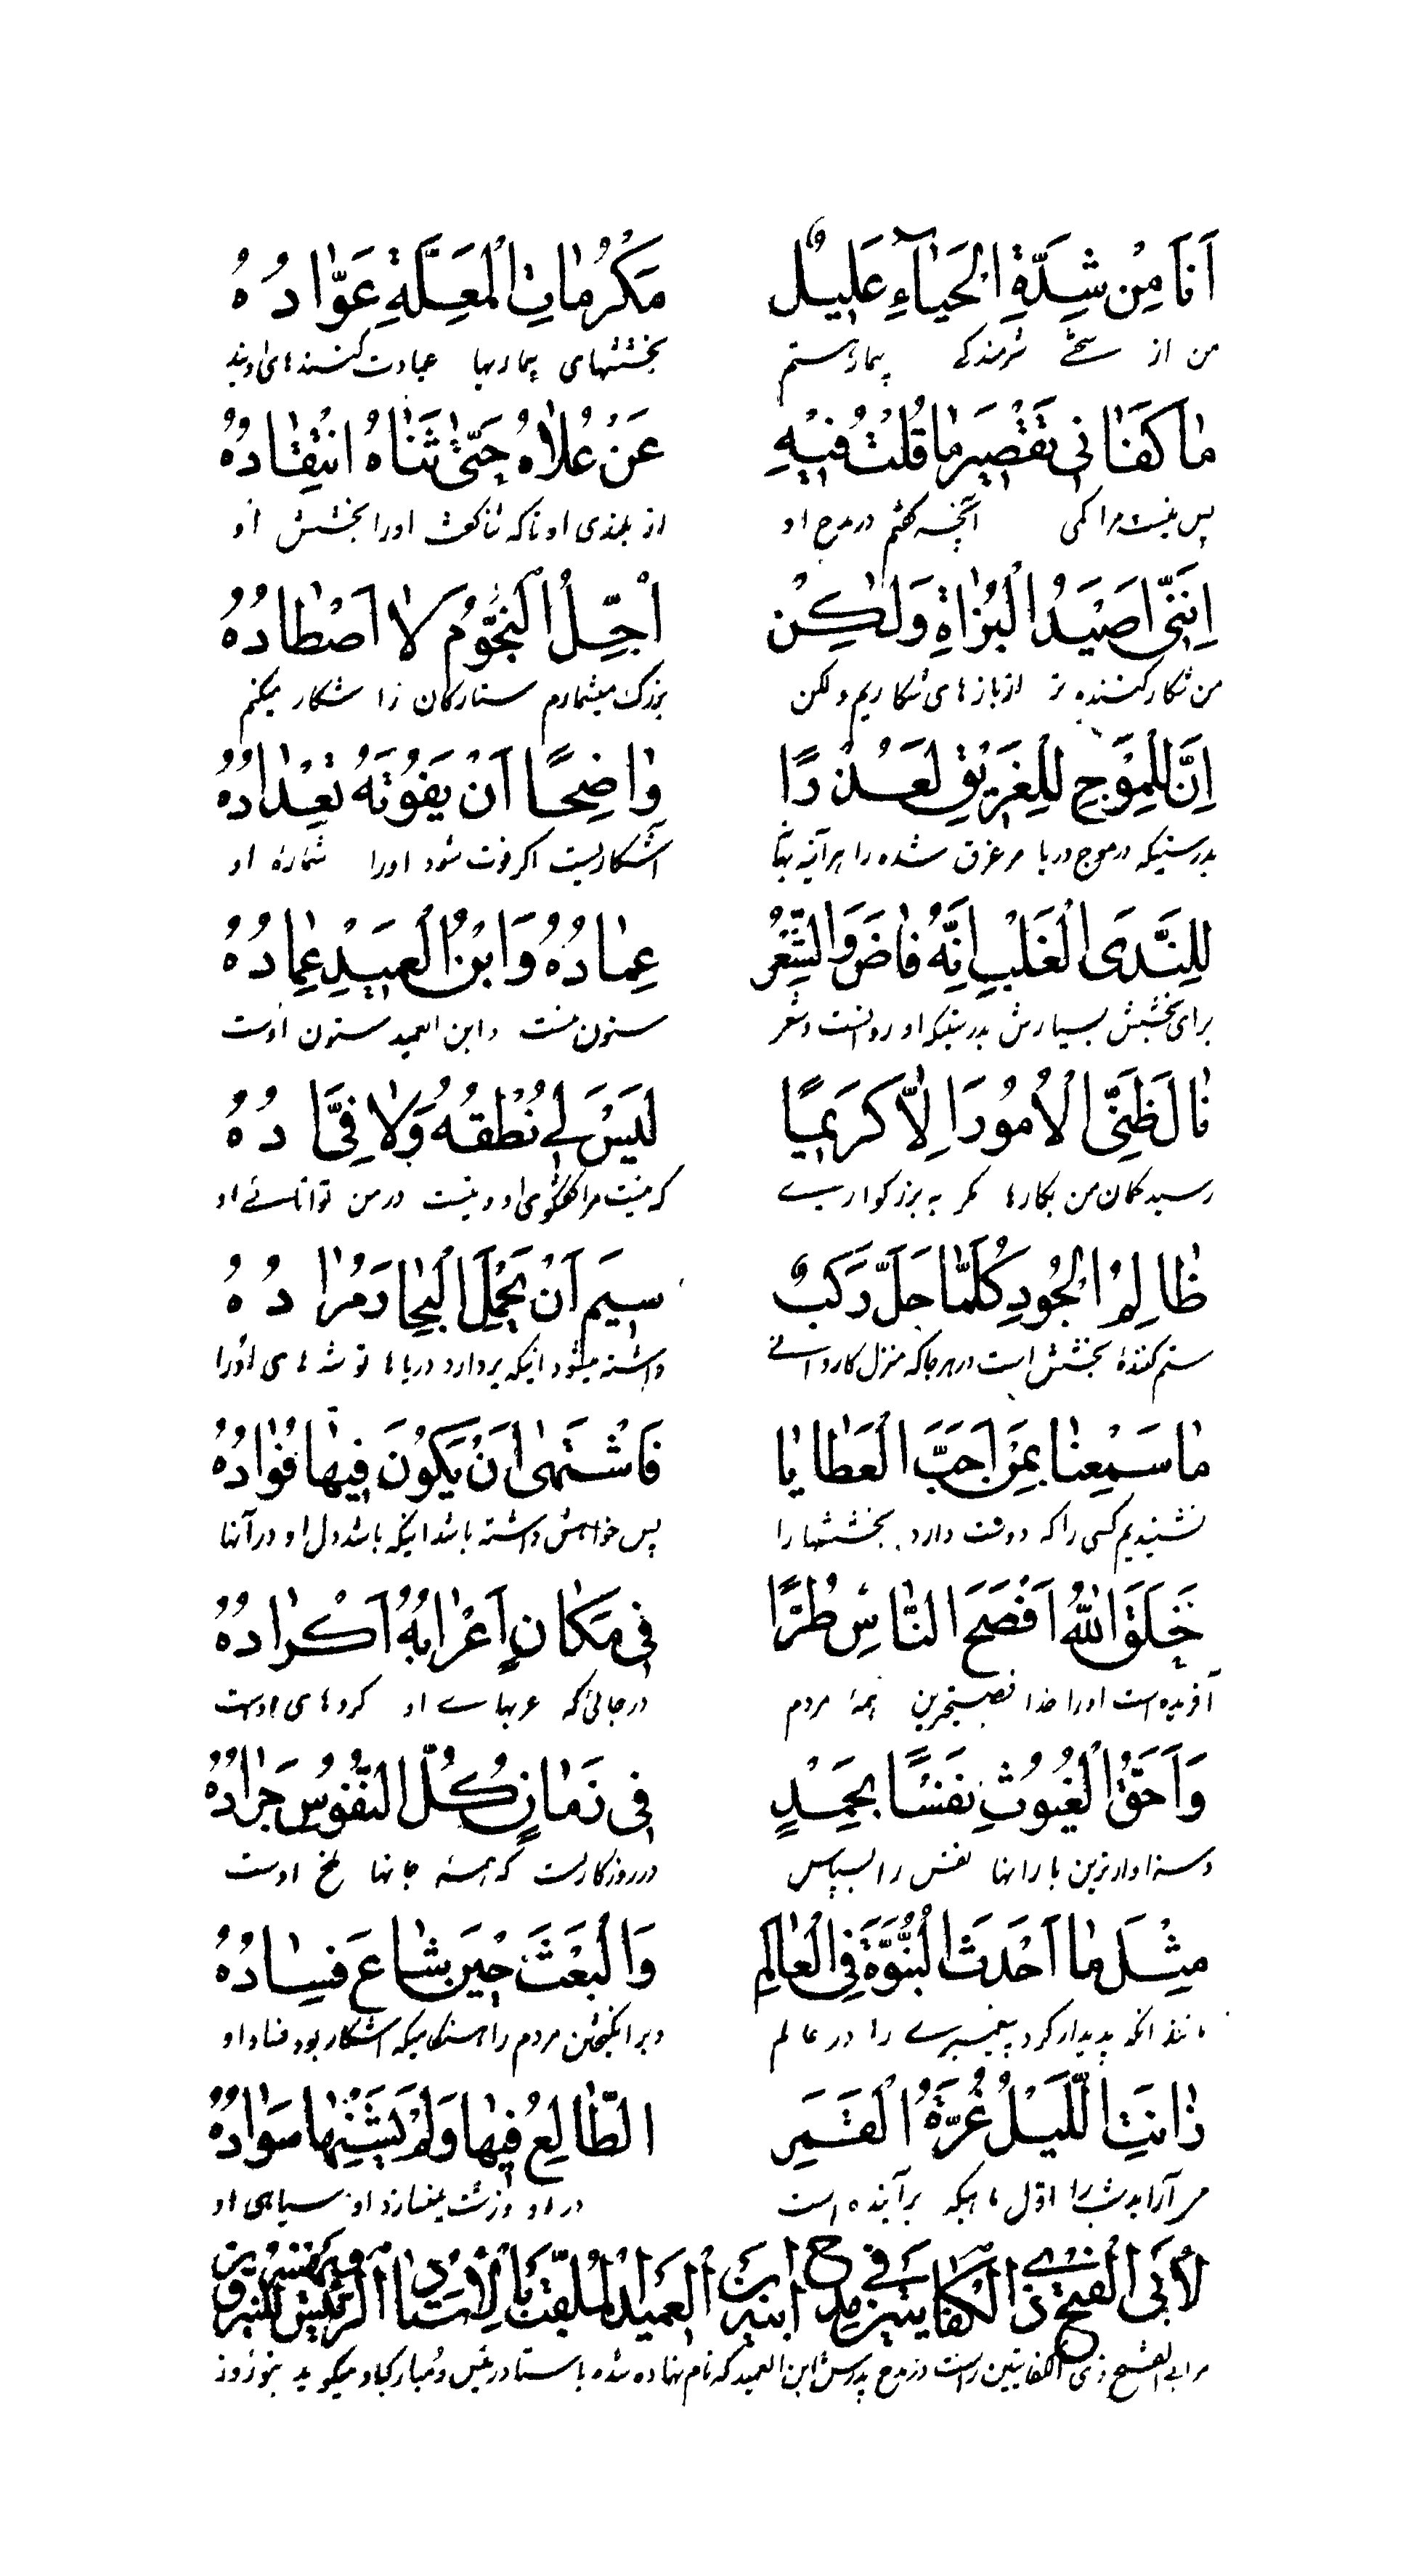 اَنَا مِنْ شِدَّةِ الْحَيَاءِ عَلِيلٌ مَكْرُمَاتِ الْمُعِلَّةِ عَوَّادُهُ
من از سختے شرمندکے بیمار هستم بخششهای بیماریها عیادت کنندهای ویند
مَا كَفَانِي تَقْصِيرُ مَا قُلْتُ فِيهِ عَنْ عُلَاهُ حَتّىٰ ثَنَاهُ انْتِقَادُهُ
پس نیست مرا کمی آنچه کفتم در مدح او از بلندی او تاکه او را بخشش او
اِنَّنِي اَصْيَدُ الْبُزَاةِ وَلٰكِنْ اَجَلُّ النُّجُومِ لَا اَصْطَادُهُ
من شکار کننده تر از بازهای شکاریم ولکن بزرک میشمارم ستارکان را شکار میکنم
اِنَّ لِلْمَوْجِ لِلْغَرِيقِ لَعُذْرًا وَاضِحًا اَنْ يَفُوتَهُ تَعْدَادُهُ
بدرستیکه در موج دریا مر غرق شده را هرآینه آشکاریست اکر فوت شود او را شمارهٔ او
لِلنَّدَى الْغَلْبِ اِنَّهُ فَاضَ وَالشِّعْرُ عِمَادُهُ وَابْنُ الْعَمِيدِ عِمَادُهُ
برای بخشش بسیارش بدرستیکه او روانست وشعر ستون منست وابن العمید ستون اوست
نَالَ ظَنِّي الْاُمُورَ اِلَّا كَرِيمًا لَيْسَ لِي نُطْقُهُ وَلَا فِيَّ ادُهُ
رسید کمان من بکارها مکر به بزرکواریے که نیست مرا کفتکوی او ونیست در من توانائے او
ظَالِمُ الْجُودِ كُلَّمَا حَلَّ رَكْبٌ سِيمَ اَنْ يَحْمِلَ الْبِحَارَ مَزَادُهُ
ستم کنندهٔ بخشش است در هر جا که منزل کاروانے داشته میشود اینکه بردارد دریاها توشه های او را
مَا سَمِعْنَا بِمَنْ اَحَبَّ الْعَطَايَا فَاشْتَهٰى اَنْ يَكُونَ فِيهَا فُؤَادُهُ
نشنیدیم کسی را که دوست دارد بخششها را پس خواهش داشته باشد اینکه باشد دل او در آنها
خَلَقَ اللهُ اَفْصَحَ النَّاسِ طُرًّا فِي مَكَانٍ اَعْرَابُهُ اَكْرَادُهُ
آفریده است او را خدا فصیحترین همهٔ مردم در جائی که عربهاے او کردهای اوست
وَاَحَقُّ الْغُيُوثِ نَفْسًا بِحَمْدٍ فِي زَمَانٍ كُلُّ النُّفُوسِ جَرَادُهُ
وسزاوارترین بارانها نفس را بسپاس در روزکاریست که همه جانها ملخ اوست
مِثْلَ مَا اَحْدَثَ النُّبُوَّةَ فِي الْعَالَمِ وَالْبَعْثَ حِينَ شَاعَ فَسَادُهُ
مانند انکه پدیدار کرد پیغمبرے را در عالم وبرانکیختن مردم را هنکامیکه آشکار بود فساد او
زَانَتِ اللَّيْلَ غُرَّةُ الْقَمَرِ الطَّالِعِ فِيهَا وَلَمْ يَشِنْهَا سَوَادُهُ
مر آراید شب را اوّل ماهیکه برآینده است در او وزشت نمیسازد او سیاهی او
لِاَبِي الْفَتْحِ ذِي الْكِفَايَتَيْنِ فِي مَدْحِ ابْنِ الْعَمِيدِ الْمُلَقَّبِ بِالْاُسْتَاذِ الرَّئِيسِ
مر ابی الفتح ذی الکفایتین راست در مدح پدرش ابن العمید که نام نهاده شده باستاد رئیس ومبارکباد میکوید بنوروز